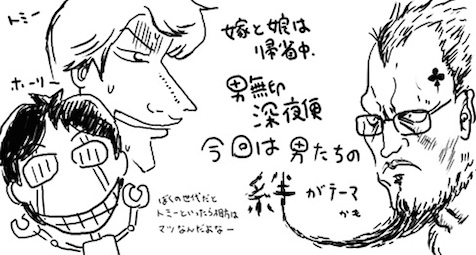 トミー
ホーリー
嫁と娘は
帰省中.
男無印
深夜便
今回は男たちの
絆がテーマ
かも
ぼくの世代だと
トミーといったら相方は
マツなんだよなー